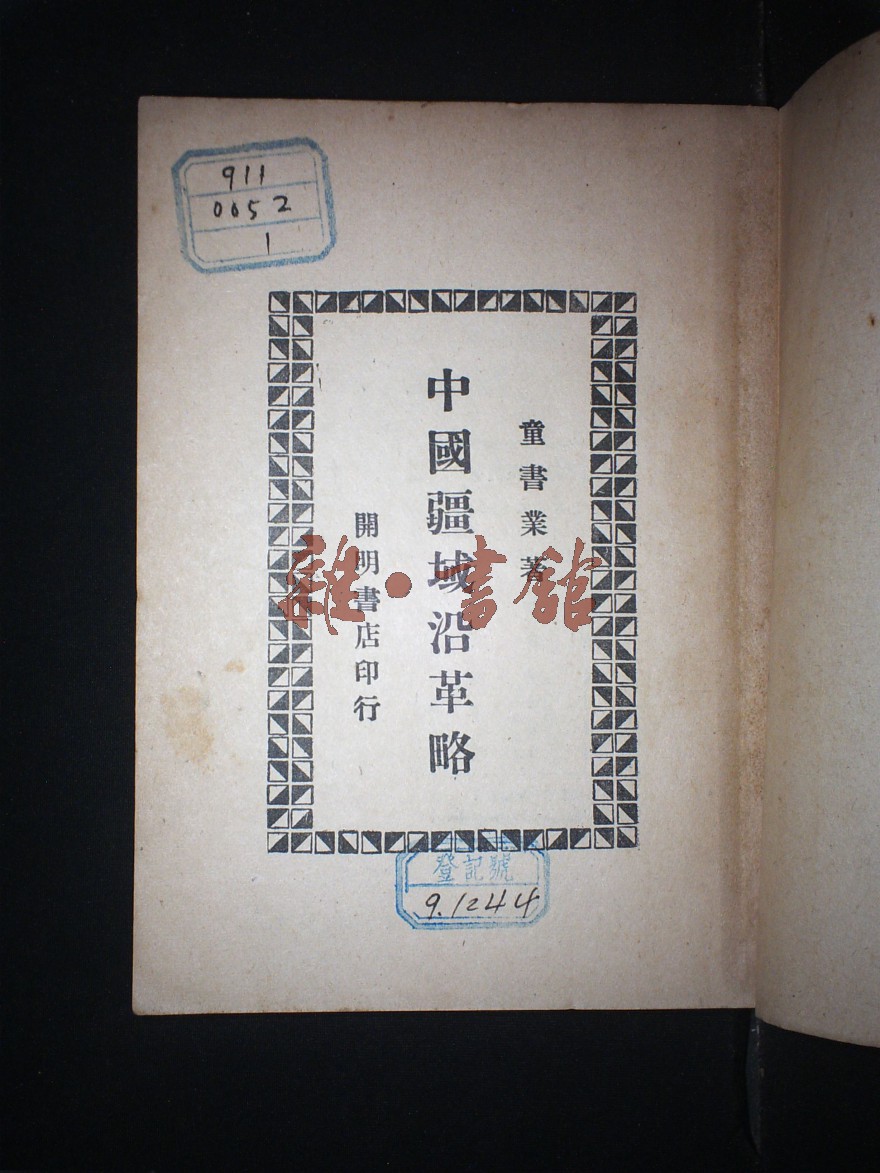 911
0052
1
童書業著
中國疆域沿革略
開明書店印行
雜·書館
登記號
9.1244